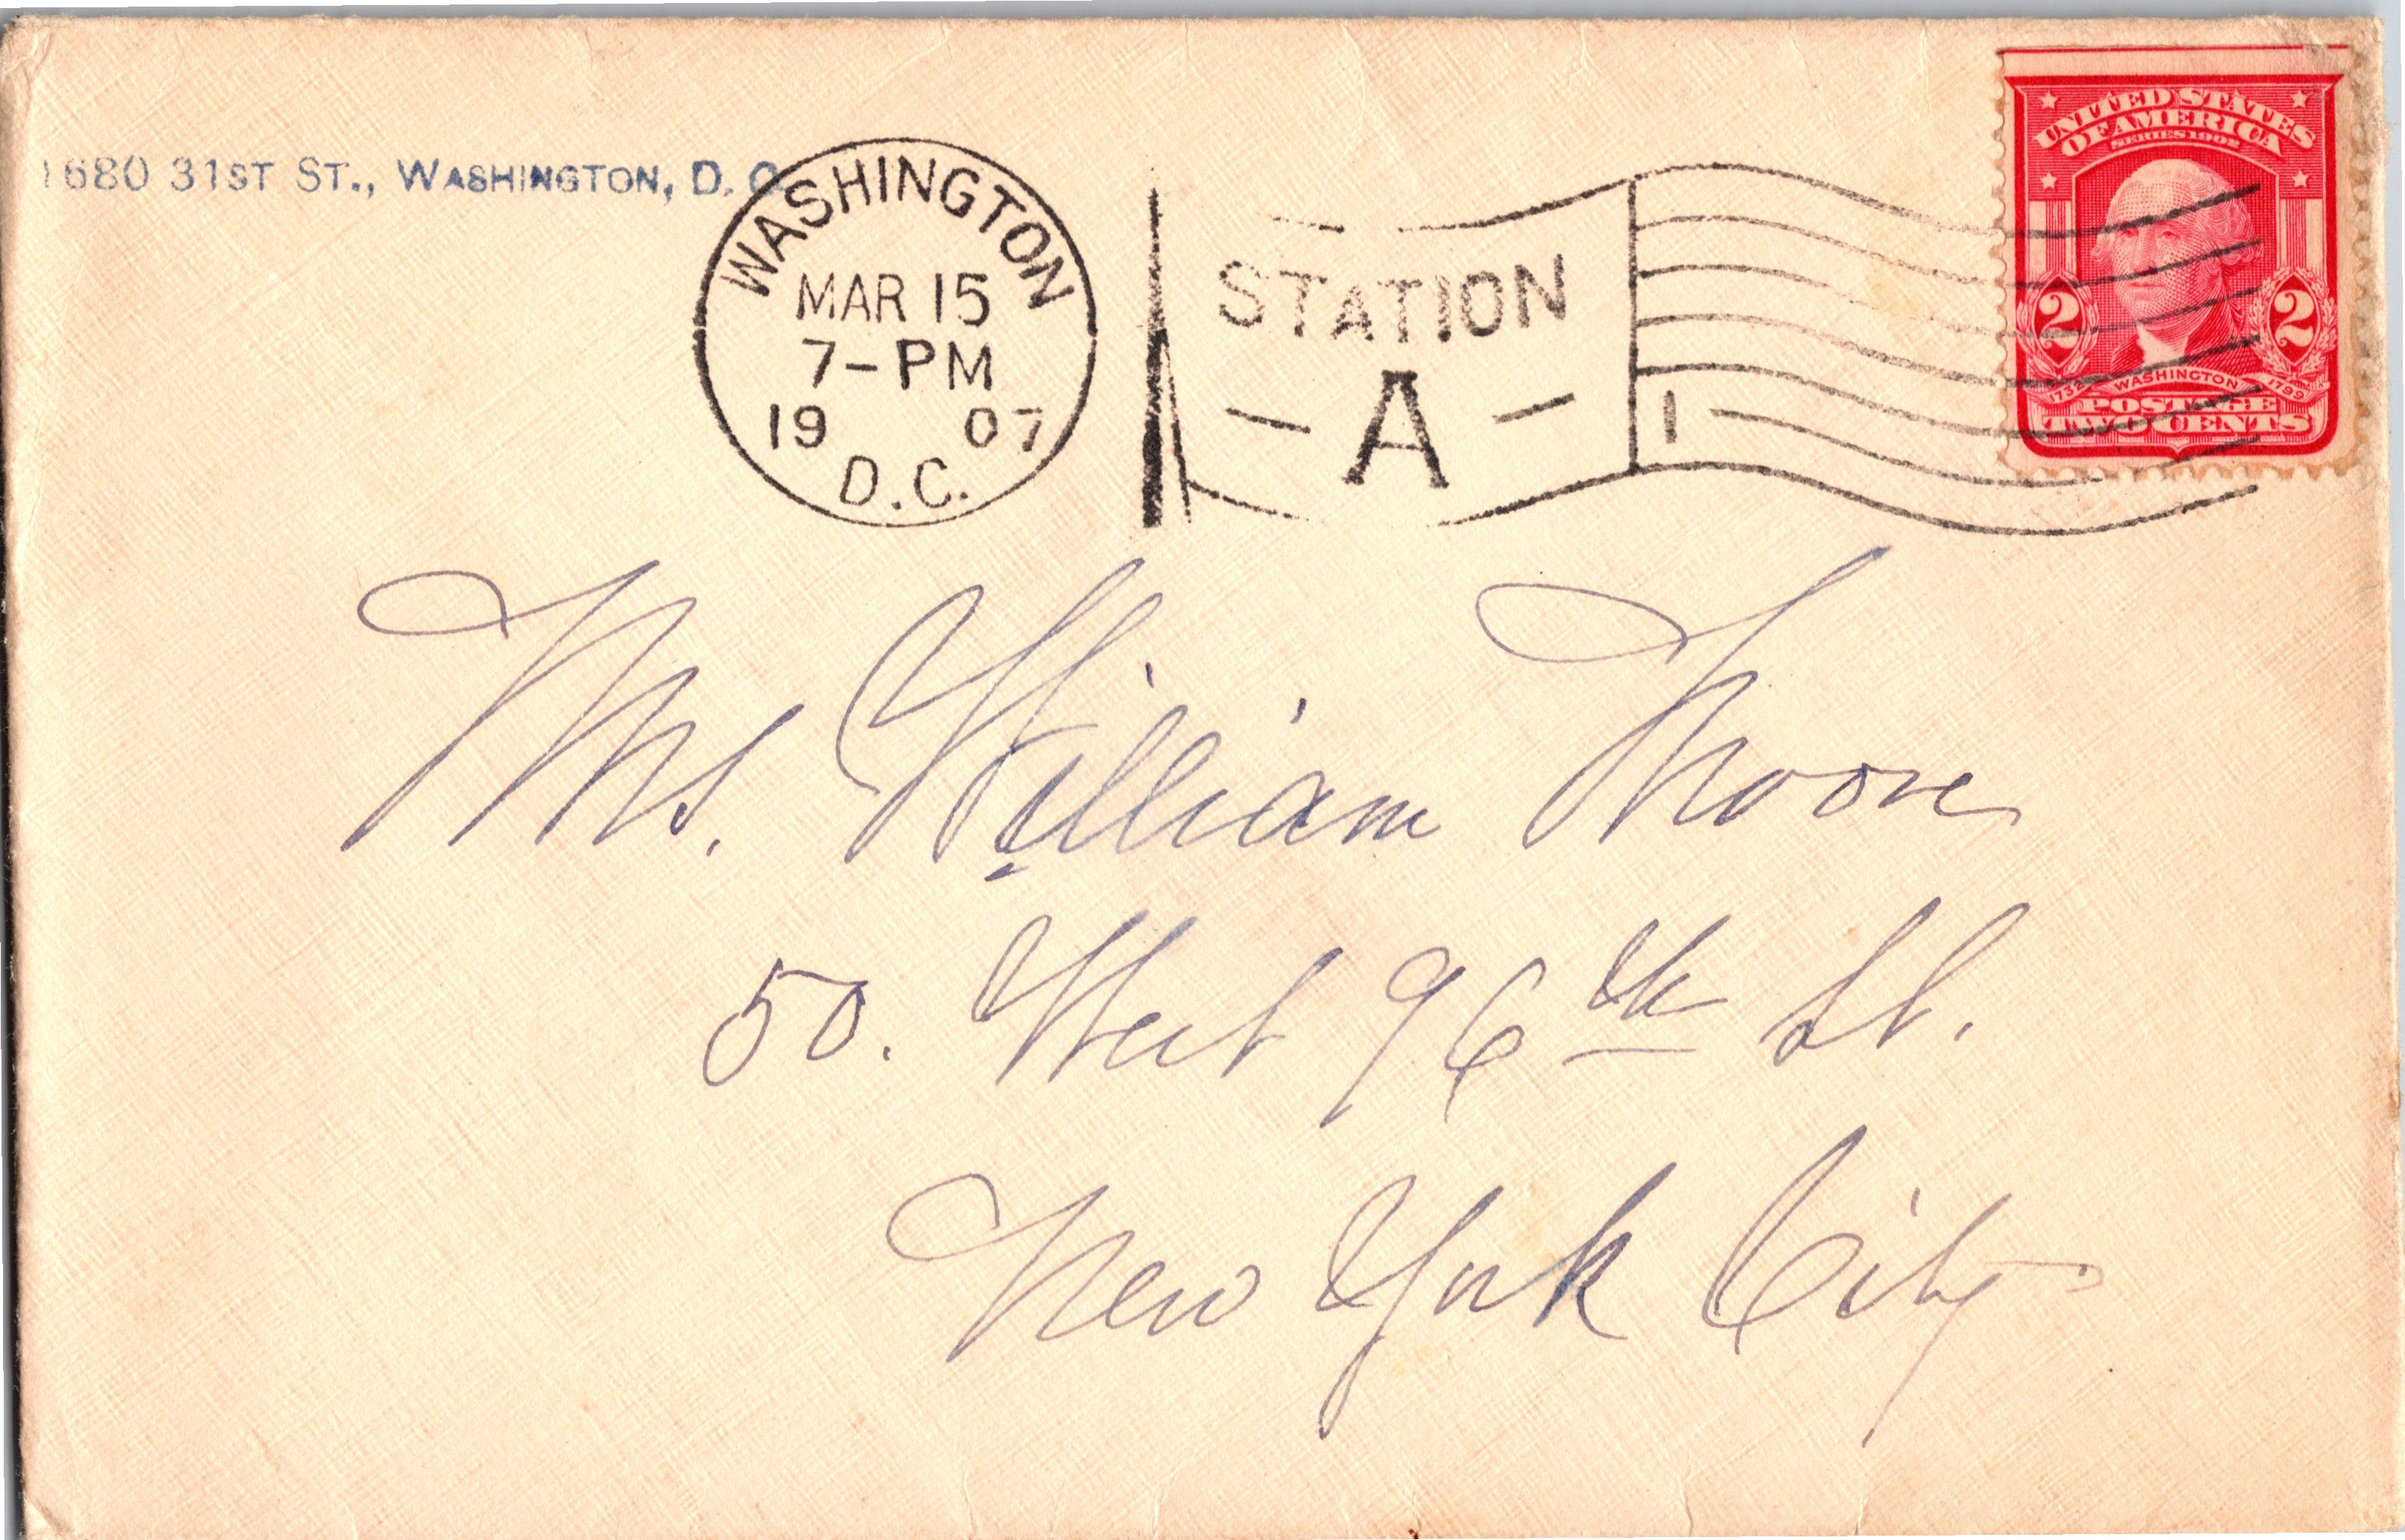 1680 31ST ST., WASHINGTON, D. C.
WASHINGTON
MAR 15
7-PM
19 07
D.C.
STATION
- A -
1
UNITED STATES
OF AMERICA
SERIES 1902
2 2
1732 WASHINGTON 1799
POSTAGE
TWO CENTS
Mrs. William Moore
50. West 96th St.
New York City